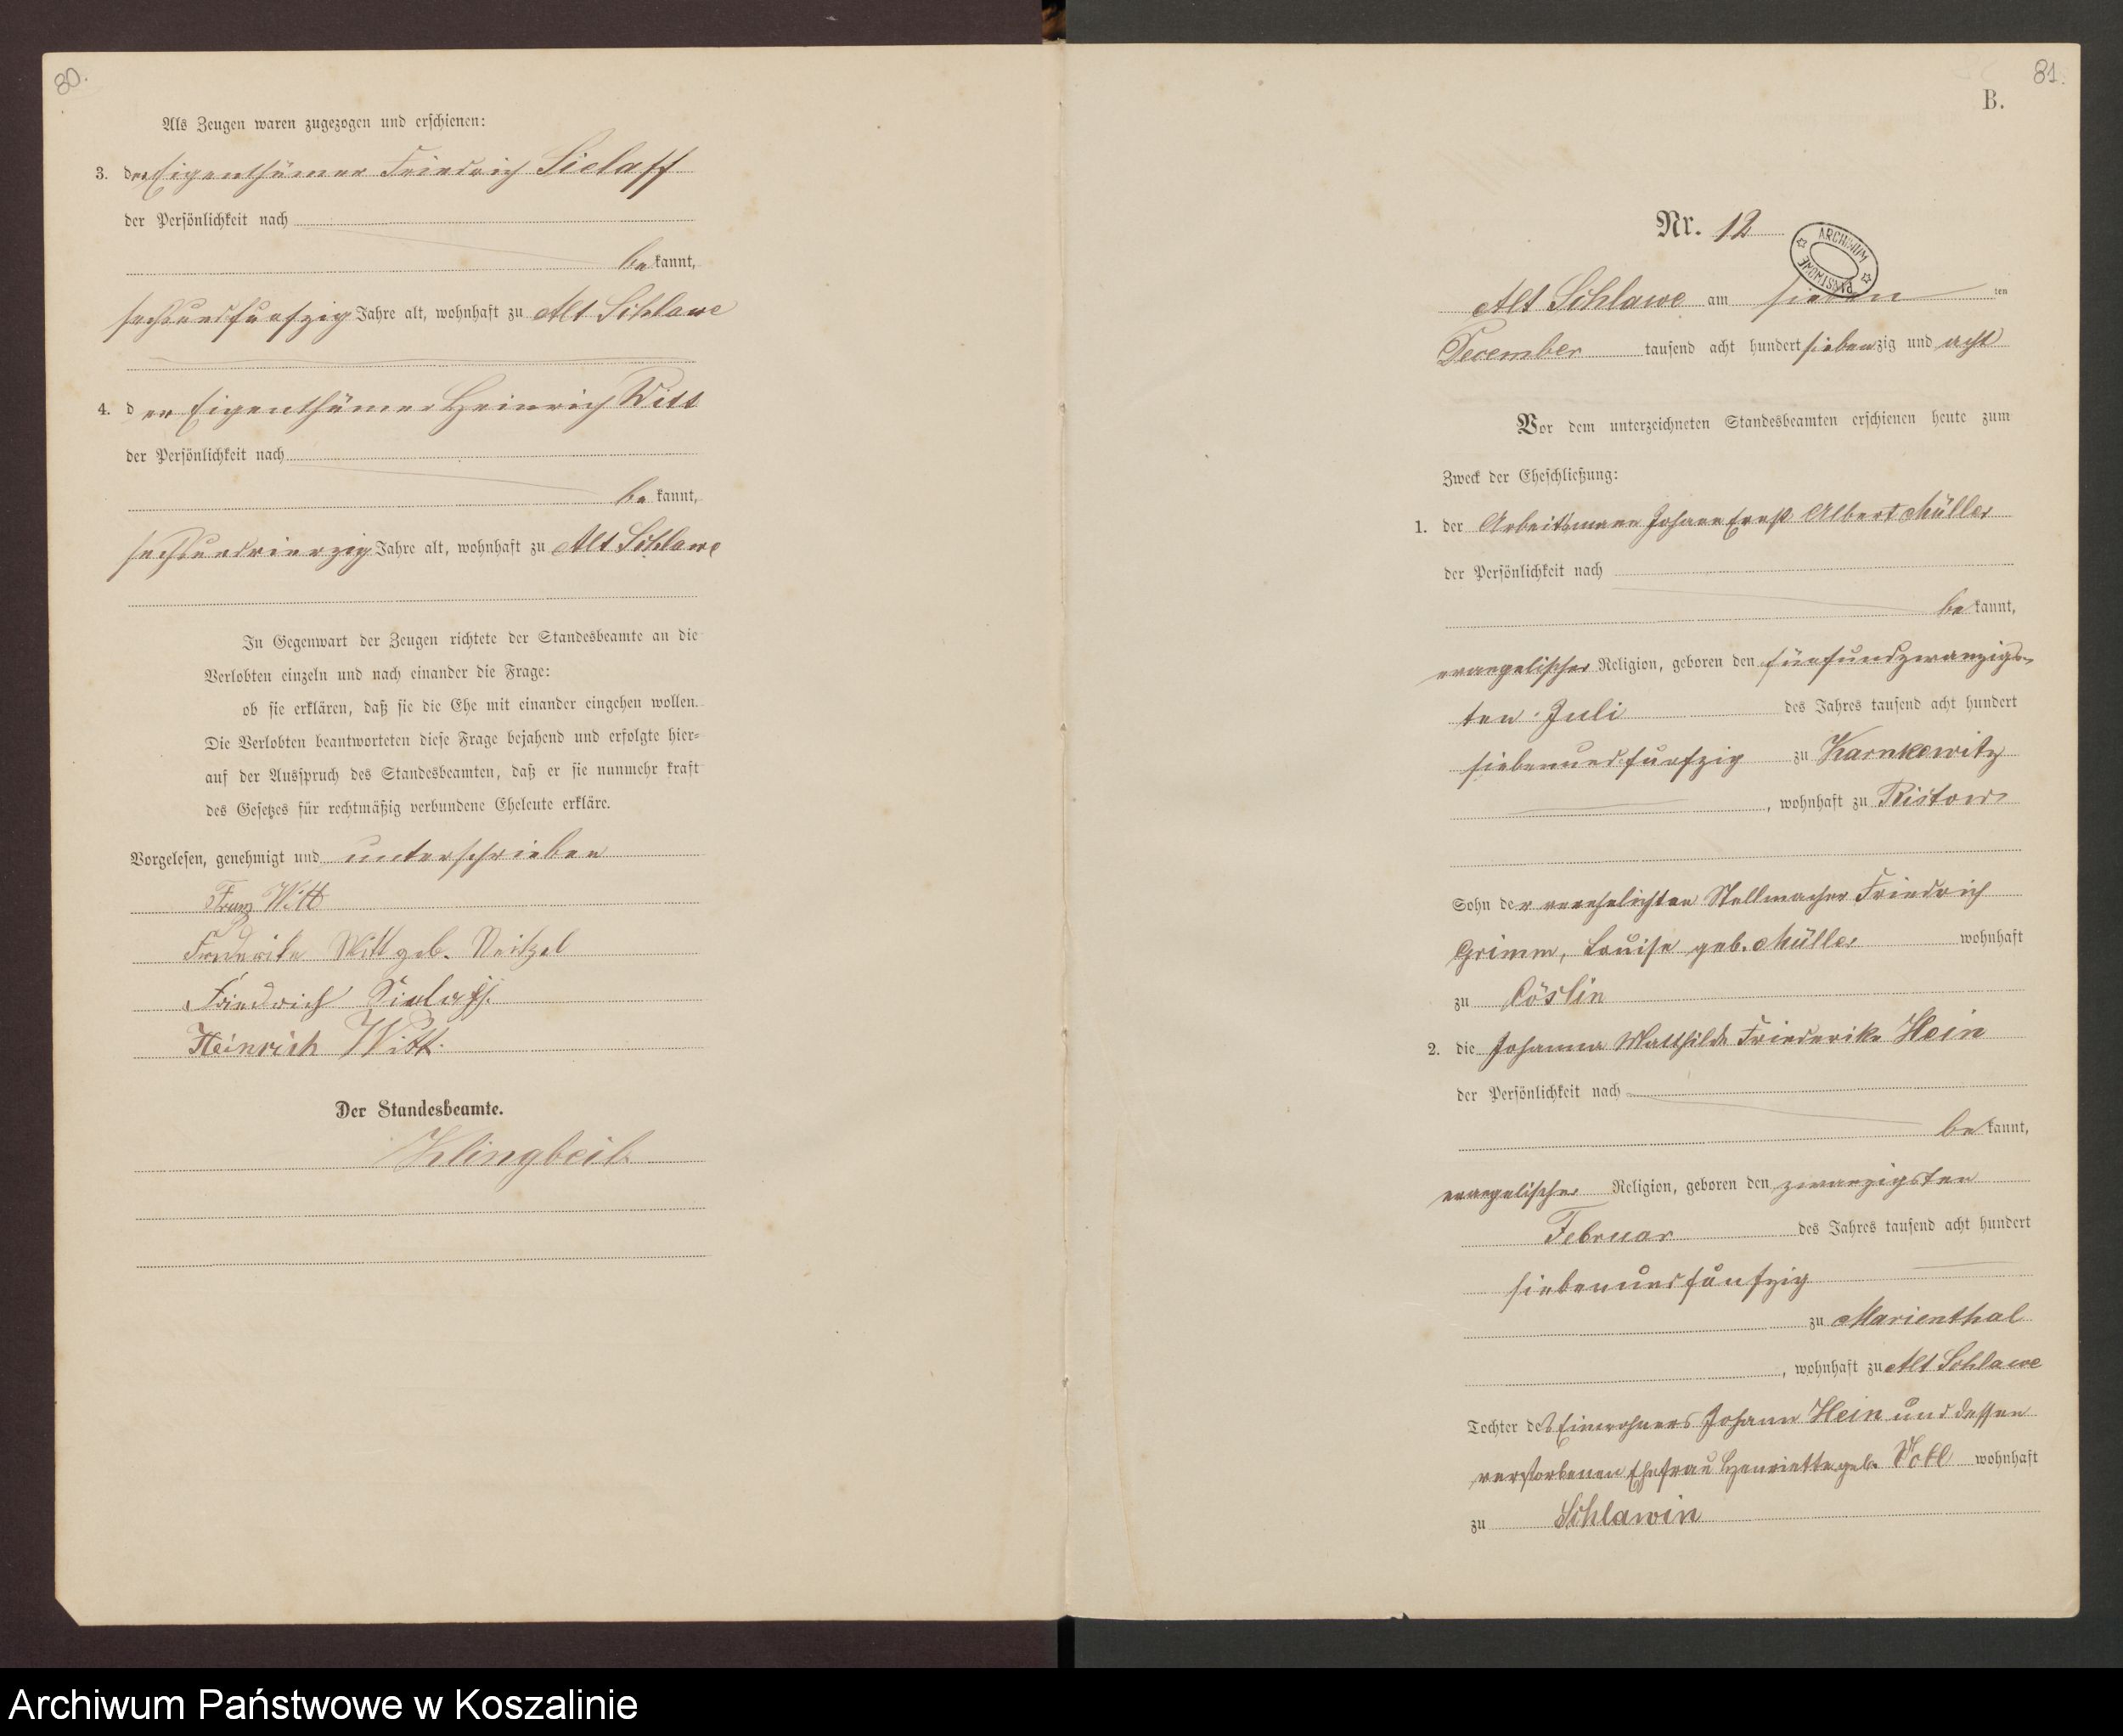 80.
Als Zeugen waren zugezogen und erschienen:
3. der Eigenthümer Friedrich Sielaff
der Persönlichkeit nach
bekannt,
sechsundfunfzig Jahre alt, wohnhaft zu Alt Schlawe
4. der Eigenthümer Heinrich Witt
der Persönlichkeit nach
bekannt,
sechsundvierzig Jahre alt, wohnhaft zu Alt Schlawe
In Gegenwart der Zeugen richtete der Standesbeamte an die
Verlobten einzeln und nach einander die Frage:
ob sie erklären, daß sie die Ehe mit einander eingehen wollen.
Die Verlobten beantworteten diese Frage bejahend und erfolgte hier-
auf der Ausspruch des Standesbeamten, daß er sie nunmehr kraft
des Gesetzes für rechtmäßig verbundene Eheleute erkläre.
Vorgelesen, genehmigt und unterschrieben
Franz Witt
Friederike Witt geb. Neitzel
Friedrich Sielaff.
Heinrich Witt.
Der Standesbeamte.
Klingbeil
81.
B.
Nr. 12
ARCHIWUM PAŃSTWOWE
Alt Schlawe am sieben ten
December tausend acht hundert siebenzig und acht
Vor dem unterzeichneten Standesbeamten erschienen heute zum
Zweck der Eheschließung:
1. der Arbeitsmann Johann Ernst Albert Müller
der Persönlichkeit nach
bekannt,
evangelischer Religion, geboren den fünfundzwanzigs-
ten Juli des Jahres tausend acht hundert
siebenundfunfzig zu Karnkewitz
, wohnhaft zu Ristow
Sohn der verehelichten Stellmacher Friedrich
Grimm, Louise geb. Müller wohnhaft
zu Cöslin
2. die Johanna Mathilde Friederike Hein
der Persönlichkeit nach
bekannt,
evangelischer Religion, geboren den zwanzigsten
Februar des Jahres tausend acht hundert
siebenundfunfzig
zu Marienthal
, wohnhaft zu Alt Schlawe
Tochter des Einwohners Johann Hein und dessen
verstorbenen Ehefrau Henriette geb. wohnhaft
zu Schlawin
Archiwum Państwowe w Koszalinie